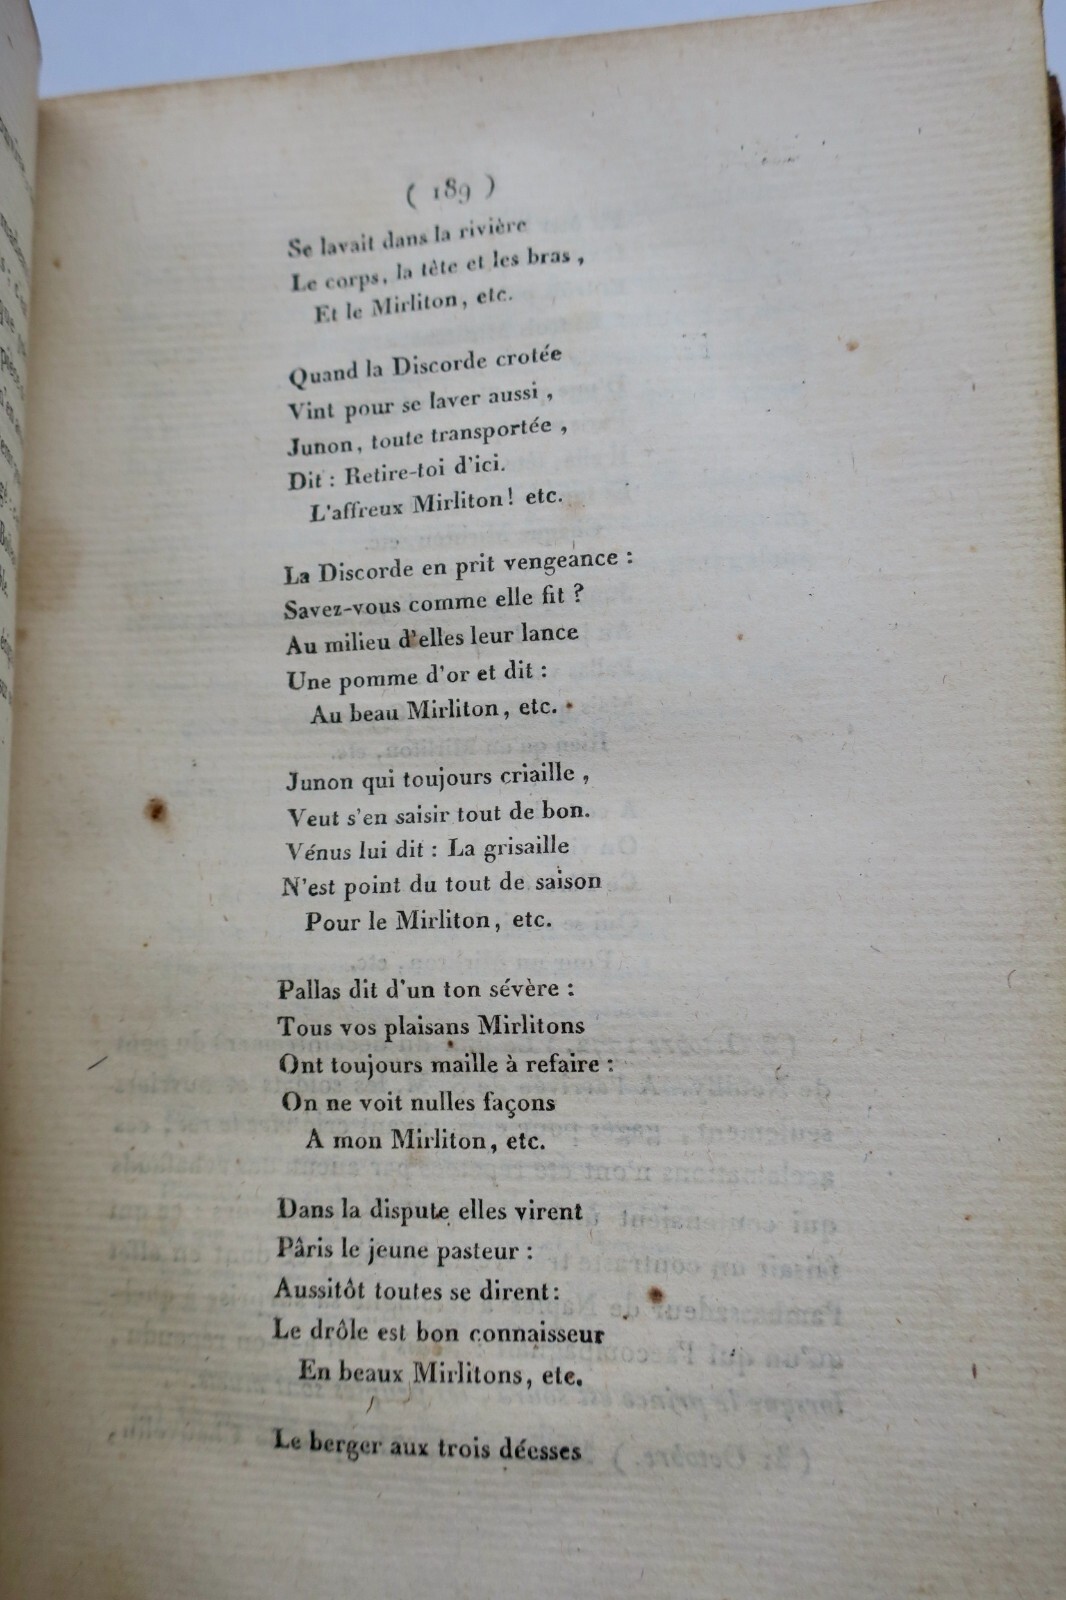 ( 189 )
Se lavait dans la rivière
Le corps, la tête et les bras ,
Et le Mirliton, etc.
Quand la Discorde crotée
Vint pour se laver aussi ,
Junon, toute transportée ,
Dit : Retire-toi d'ici.
L'affreux Mirliton ! etc.
La Discorde en prit vengeance :
Savez-vous comme elle fit ?
Au milieu d'elles leur lance
Une pomme d'or et dit :
Au beau Mirliton, etc.
Junon qui toujours criaille ,
Veut s'en saisir tout de bon.
Vénus lui dit : La grisaille
N'est point du tout de saison
Pour le Mirliton, etc.
Pallas dit d'un ton sévère :
Tous vos plaisans Mirlitons
Ont toujours maille à refaire :
On ne voit nulles façons
A mon Mirliton, etc.
Dans la dispute elles virent
Pâris le jeune pasteur :
Aussitôt toutes se dirent :
Le drôle est bon connaisseur
En beaux Mirlitons, etc.
Le berger aux trois déesses